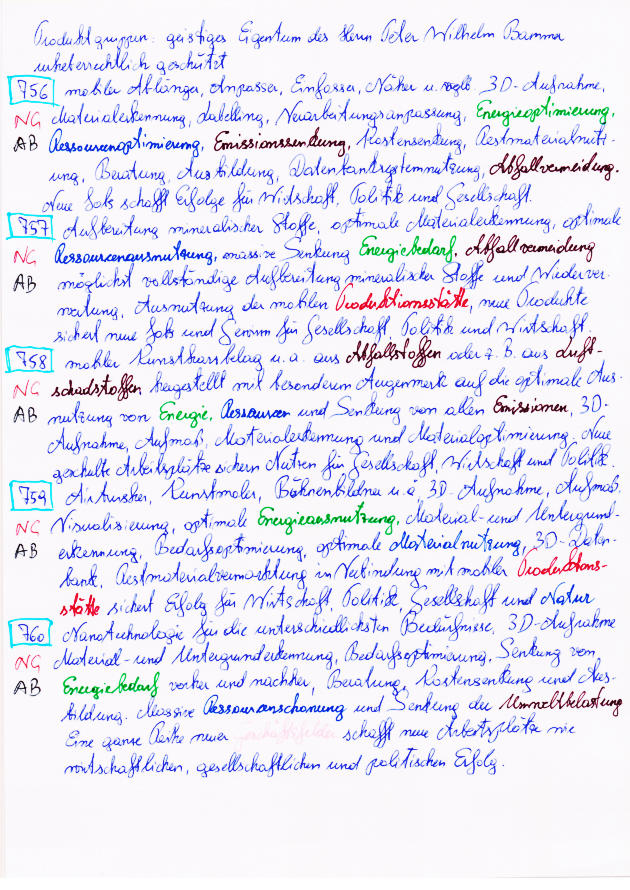 Produktgruppen: geistiges Eigentum des Herrn Peter Wilhelm Bamma
urheberrechtlich geschützt
756 mobiler Ablänger, Anpasser, Einfasser, Näher u. vgl. 3D-Aufnahme,
NG Materialerkennung, Labelling, Verarbeitungsanpassung, Energieoptimierung,
AB Ressourcenoptimierung, Emissionssenkung, Kostensenkung, Restmaterialnutz-
ung, Beratung, Ausbildung, Datenbanksystemnutzung, Abfallvermeidung.
Neue Jobs schafft Erfolge für Wirtschaft, Politik und Gesellschaft.
757 Aufbereitung mineralischer Stoffe, optimale Materialerkennung, optimale
NG Ressourcenausnutzung, massive Senkung Energiebedarf, Abfallvermeidung
AB möglichst vollständige Aufbereitung mineralischer Stoffe und Wiederver
wertung, Ausnutzung der mobilen Produktionsstätte, neue Produkte
sichert neue Jobs und Gewinn für Gesellschaft, Politik und Wirtschaft.
758 mobiler Kunstharzbelag u. a. aus Abfallstoffen oder z. B. aus Luft-
NG schadstoffen hergestellt mit besonderem Augenmerk auf die optimale Aus-
AB nutzung von Energie, Ressourcen und Senkung von allen Emissionen, 3D-
Aufnahme, Aufmaß, Materialerkennung und Materialoptimierung. Neue
geschulte Arbeitsplätze sichern Nutzen für Gesellschaft, Wirtschaft und Politik.
759 Airbrusher, Kunstmaler, Bühnenbildner u. ä. 3D-Aufnahme, Aufmaß.
NG Visualisierung, optimale Energieausnutzung, Material- und Untergrund-
AB erkennung, Bedarfsoptimierung, optimale Materialnutzung, 3D-Daten-
bank, Restmaterialvermarktung in Verbindung mit mobiler Produktions-
stätte sichert Erfolg für Wirtschaft, Politik, Gesellschaft und Natur
760 Nanotechnologie für die unterschiedlichsten Bedürfnisse, 3D-Aufnahme
NG Material- und Untergrunderkennung, Bedarfsoptimierung, Senkung von
AB Energiebedarf vorher und nachher, Beratung, Kostensenkung und Aus-
bildung. Massive Ressourcenschonung und Senkung der Umweltbelastung
Eine ganze Reihe neuer Geschäftsfelder schafft neue Arbeitsplätze wie
wirtschaftlichen, gesellschaftlichen und politischen Erfolg.